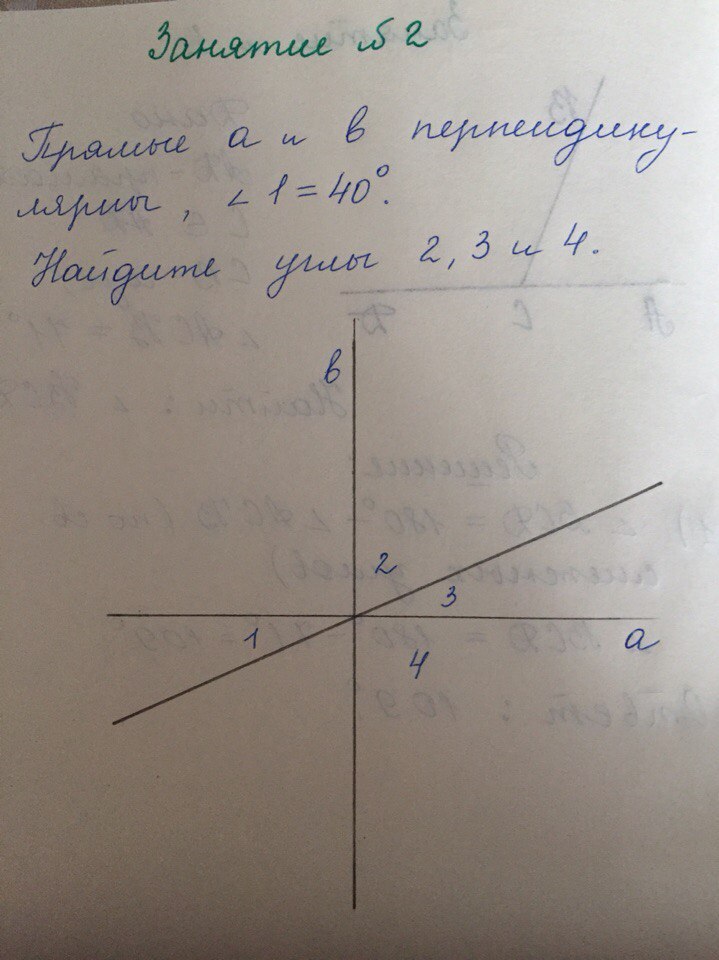 Занятие №2
Прямые а и в перпендику-
лярны, ∠1=40°.
Найдите углы 2, 3 и 4.
в
2
3
1
а
4